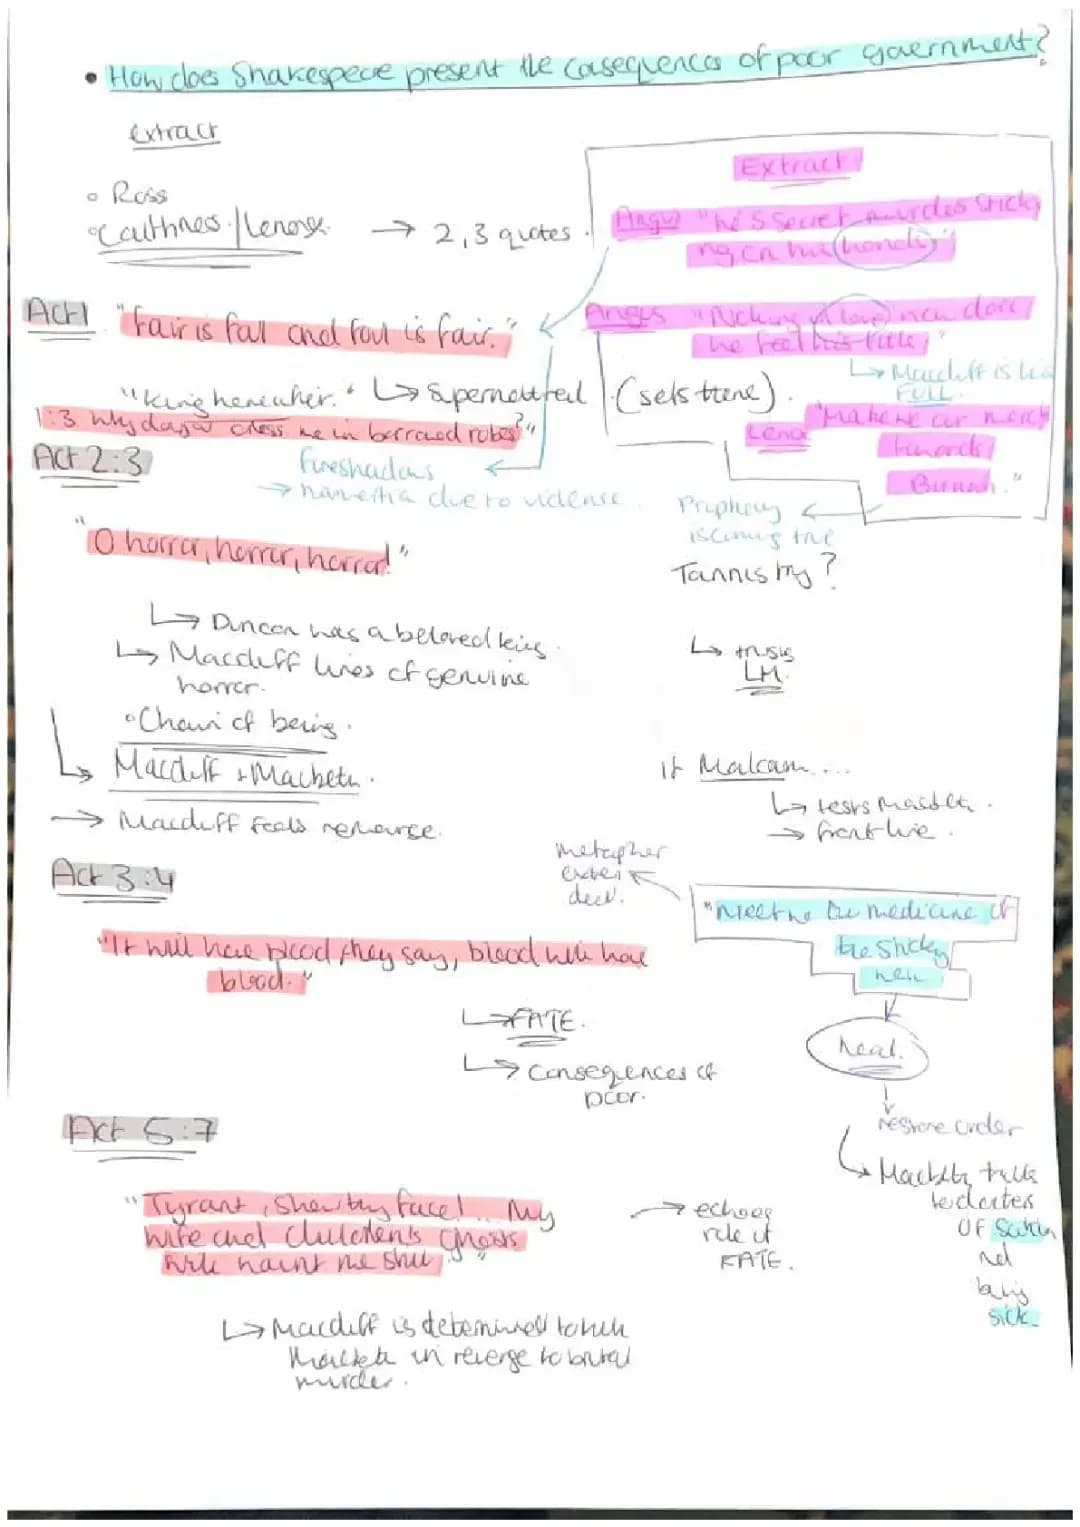 • How does Shakespece present the casequences of poor government?
extract
◦ Ross
◦ Caithness / Lenox → 2,3 quotes.
Extract
Angus "he's secret murdes sticking on his hands"
Act 1 "fair is fall and foul is fair."
Anges "Nothing in love) now does he feel his title"
↳ Macduff is less FULL.
"king hereafter." ↳ supernatural (sets tone).
1:3 why do you dress me in borrowed robes?"
Lenox "Make we our march towards Birnan."
Act 2:3
foreshadows
→ hamertia due to vidense.
Prophecy is coming true
Tannistry?
"O horror, horror, horror!"
↳ Duncan was a beloved king.
↳ Macduff lines of genuine horror.
↳ trusts LM.
◦ Chain of being.
↳ Macduff + Macbeth.
→ Macduff feels remorse.
It Malcom....
↳ tests Macbeth.
→ front line.
Act 3:4
metapher
"Meet we the medicine of the sickly
"It will have blood they say, blood will have blood."
↳ FATE.
↳ Consequences of poor.
heal.
restore order
↳ Macbeth talks to doctors
OF
being
sick.
Act 5:7
"Tyrant, show thy face!... My wife and children's ghosts will haunt me still."
→ echoes role of FATE.
↳ Macduff is determined to
Macbeth in revenge to brutal murder.